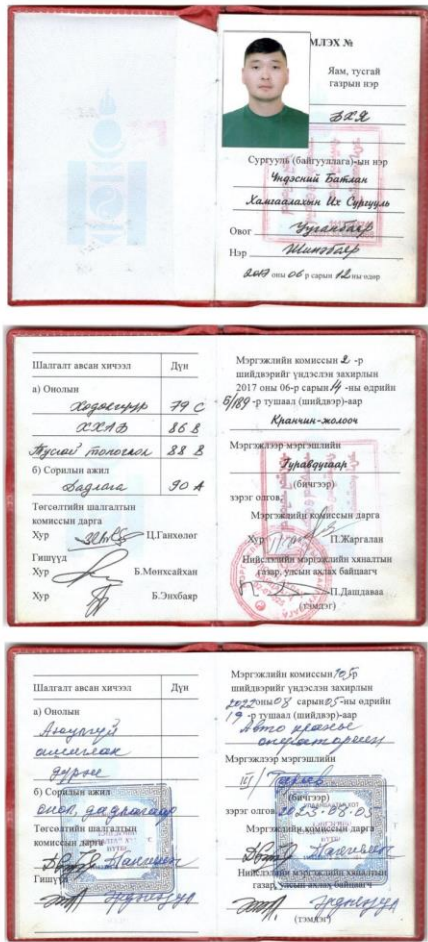 МЛЭХ №
Яам, тусгай
газрын нэр
БХЯ
Сургууль (байгууллага)-ын нэр
Үндэсний Батлан
Хамгаалахын Их Сургууль
Овог Ууганбаяр
Нэр Шинэбаяр
2017 оны 06 р сарын 12 ны өдөр
Шалгалт авсан хичээл Дүн
а) Онолын
79 C
ХХАБ 86 B
Тусгай 88 B
б) Сорилын ажил
Дадлага 90 A
Төгсөлтийн шалгалтын
комиссын дарга
Хур Ц.Ганхөлөг
Гишүүд
Хур Б.Мөнхсайхан
Хур Б.Энхбаяр
Мэргэжлийн комиссын 2 -р
шийдвэрийг үндэслэн захирлын
2017 оны 06-р сарын 14 -ны өдрийн
Б/189 -р тушаал (шийдвэр)-аар
Кранчин-жолооч
Мэргэжлээр мэргэшлийн
Гуравдугаар
(бичгээр)
зэрэг олгов.
Мэргэжлийн комиссын дарга
Хур П.Жаргалан
Нийслэлийн мэргэжлийн хяналтын
газар, улсын ахлах байцаагч
П.Дашдаваа
(тэмдэг)
Шалгалт авсан хичээл Дүн
а) Онолын
Аюулгүй
ажиллагаа
дүрэм
б) Сорилын ажил
онол, дадлагаар
Төгсөлтийн шалгалтын
комиссын дарга
Гишүүд
Мэргэжлийн комиссын
шийдвэрийг үндэслэн захирлын
2022 оны 08 сарын 05-ны өдрийн
19 -р тушаал (шийдвэр)-аар
Авто краны
операторын
Мэргэжлээр мэргэшлийн
III/
(бичгээр)
зэрэг олгов. 2023-08-05
Мэргэжлийн комиссын дарга
Нийслэлийн мэргэжлийн хяналтын
газар, улсын ахлах байцаагч
(тэмдэг)